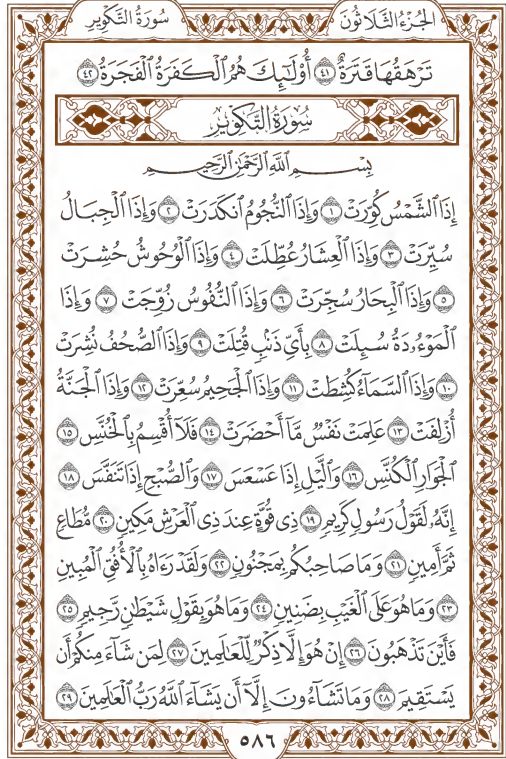 الجُزْءُ الثَّلَاثُونَ
سُورَةُ التَّكْوِيرِ
تَرْهَقُهَا قَتَرَةٌ ٤١ أُوْلَٰٓئِكَ هُمُ ٱلْكَفَرَةُ ٱلْفَجَرَةُ ٤٢
سُورَةُ التَّكْوِيرِ
بِسْمِ ٱللَّهِ ٱلرَّحْمَٰنِ ٱلرَّحِيمِ
إِذَا ٱلشَّمْسُ كُوِّرَتْ ١ وَإِذَا ٱلنُّجُومُ ٱنكَدَرَتْ ٢ وَإِذَا ٱلْجِبَالُ
سُيِّرَتْ ٣ وَإِذَا ٱلْعِشَارُ عُطِّلَتْ ٤ وَإِذَا ٱلْوُحُوشُ حُشِرَتْ
٥ وَإِذَا ٱلْبِحَارُ سُجِّرَتْ ٦ وَإِذَا ٱلنُّفُوسُ زُوِّجَتْ ٧ وَإِذَا
ٱلْمَوْءُۥدَةُ سُئِلَتْ ٨ بِأَيِّ ذَنۢبٍ قُتِلَتْ ٩ وَإِذَا ٱلصُّحُفُ نُشِرَتْ
١٠ وَإِذَا ٱلسَّمَآءُ كُشِطَتْ ١١ وَإِذَا ٱلْجَحِيمُ سُعِّرَتْ ١٢ وَإِذَا ٱلْجَنَّةُ
أُزْلِفَتْ ١٣ عَلِمَتْ نَفْسٌ مَّآ أَحْضَرَتْ ١٤ فَلَآ أُقْسِمُ بِٱلْخُنَّسِ ١٥
ٱلْجَوَارِ ٱلْكُنَّسِ ١٦ وَٱلَّيْلِ إِذَا عَسْعَسَ ١٧ وَٱلصُّبْحِ إِذَا تَنَفَّسَ ١٨
إِنَّهُۥ لَقَوْلُ رَسُولٍ كَرِيمٍ ١٩ ذِى قُوَّةٍ عِندَ ذِى ٱلْعَرْشِ مَكِينٍ ٢٠ مُّطَاعٍ
ثَمَّ أَمِينٍ ٢١ وَمَا صَاحِبُكُم بِمَجْنُونٍ ٢٢ وَلَقَدْ رَءَاهُ بِٱلْأُفُقِ ٱلْمُبِينِ
٢٣ وَمَا هُوَ عَلَى ٱلْغَيْبِ بِضَنِينٍ ٢٤ وَمَا هُوَ بِقَوْلِ شَيْطَٰنٍ رَّجِيمٍ ٢٥
فَأَيْنَ تَذْهَبُونَ ٢٦ إِنْ هُوَ إِلَّا ذِكْرٌ لِّلْعَٰلَمِينَ ٢٧ لِمَن شَآءَ مِنكُمْ أَن
يَسْتَقِيمَ ٢٨ وَمَا تَشَآءُونَ إِلَّآ أَن يَشَآءَ ٱللَّهُ رَبُّ ٱلْعَٰلَمِينَ ٢٩
٥٨٦